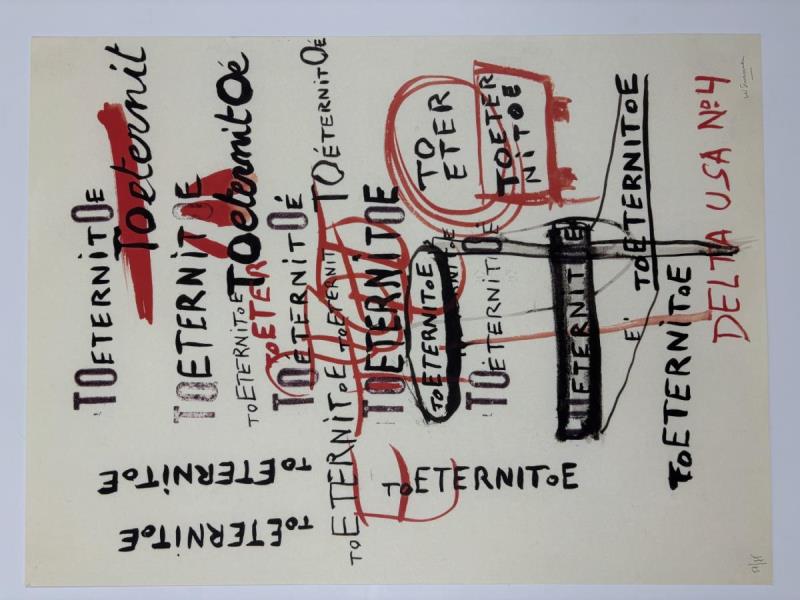 TOETERNiTOE
TOeternit
TOETERNiTOE
TOeternitOé
TOETERNiTOE
TOETER
TOÉTERNiTOÉ
TOÉTERNiTOÉ
TOETERNiT
TOETERNiTOE
TOETERNITOE
TO
ETER
TOETER
NiTOE
TOETERNiTOE
TOETERNiTOE
TOETERNITOE
TOETERNITOE
TOETERNITOE
DELTA USA Nº4
TOETERNITOE
TOETERNiTOE
TOETERNiTOE